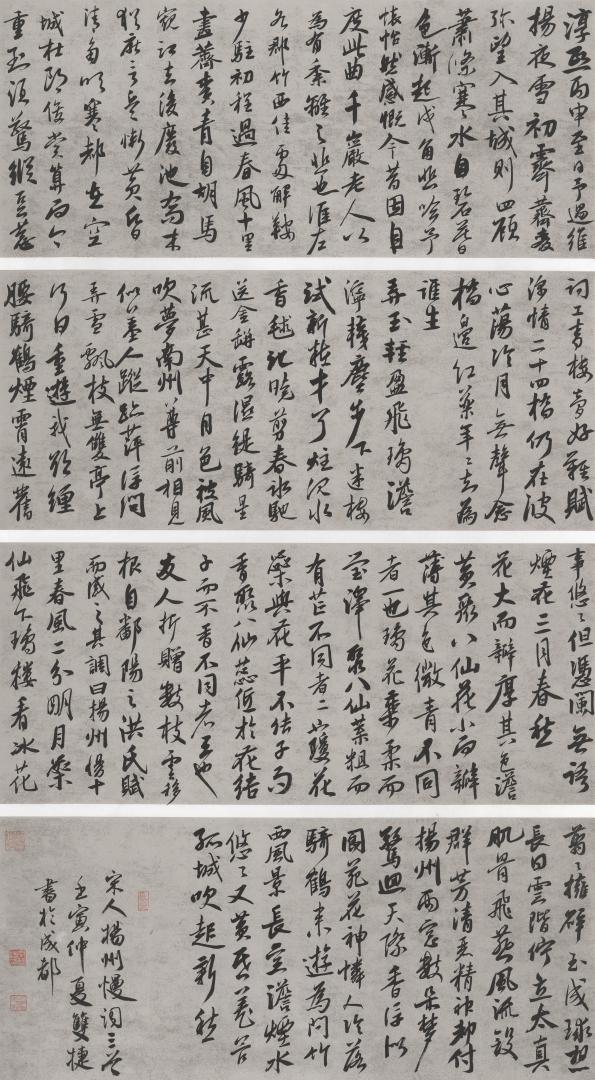 淳熙丙申至日予過維
揚夜雪初霽薺麥
弥望入其城則四顧
蕭條寒水自碧暮
色漸起戍角悲吟予
懷愴然感慨今昔因自
度此曲千巖老人以
為有黍離之悲也淮左
名都竹西佳處解鞍
少駐初程過春風十里
盡薺麥青自胡馬
窺江去後廢池喬木
猶厭言兵漸黃昏
清角吹寒都在空
城杜郎俊賞算而今
重到須驚縱豆蔻
詞工青樓夢好難賦
深情二十四橋仍在波
心蕩冷月無聲念
橋邊紅藥年〻知為
誰生
弄玉輕盈飛瓊澹
濘襪塵步下迷樓
試新妝才了炷沉水
香毬記曉剪春冰馳
送金缾露濕緹騎星
流甚天中月色被風
吹夢南州尊前相見
似羞人蹤跡萍浮問
弄雪飄枝無雙亭上
何日重遊我欲纏
腰騎鶴煙霄遠舊
事悠〻但憑闌無語
煙花三月春愁
花大而瓣厚其色澹
黃聚八仙花小而瓣
薄其色微青不同
者一也瓊花葉柔而
瑩澤聚八仙葉粗而
有芒不同者二也瓊花
蕊與花平不結子而
香聚八仙蕊低於花結
子而不香不同者三也
友人折贈數枝云移
根自鄱陽之洪氏賦
而感之其調曰揚州慢十
里春風二分明月蕊
仙飛下瓊樓看冰花
翦〻擁碎玉成毬想
長日雲階佇立太真
肌骨飛燕風流斂
群芳清麗精神都付
揚州雨窗數朵夢
驚迴天際香浮似
閬苑花神憐人冷落
騎鶴來遊為問竹
西風景長空澹煙水
悠〻又黃昏羌管
孤城吹起新愁
宋人揚州慢詞三首
壬寅仲夏雙捷
書於成都